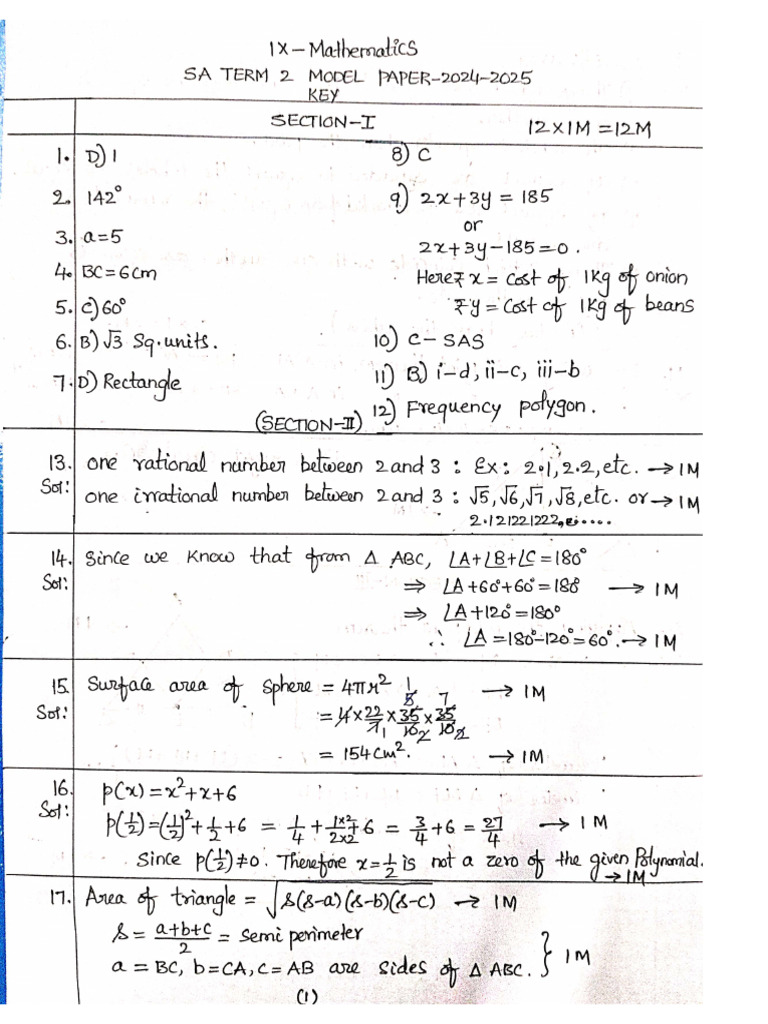 IX-Mathematics
SA TERM 2 MODEL PAPER-2024-2025
KEY
SECTION-I 12×1M=12M
1. D) 1
2. 142°
3. a=5
4. BC=6cm
5. C) 60°
6. B) √3 Sq.units.
7. D) Rectangle
8) C
9) 2x+3y = 185
or
2x+3y-185=0.
Here ₹ x = Cost of 1Kg of onion
₹ y = Cost of 1Kg of beans
10) C- SAS
11) B) i-d, ii-c, iii-b
12) Frequency polygon.
(SECTION-II)
13. one rational number between 2 and 3 : Ex: 2.1, 2.2, etc. → 1M
Sol: one irrational number between 2 and 3 : √5, √6, √7, √8, etc. or → 1M
2.121221222,.....
14. Since we know that from Δ ABC, ∠A+∠B+∠C=180°
Sol: ⇒ ∠A+60°+60°=180° → 1M
⇒ ∠A+120°=180°
∴ ∠A=180°-120°=60°. → 1M
15. Surface area of sphere = 4πr² → 1M
Sol: = 4×22/7×35/10×35/10
= 154cm². → 1M
16. p(x)=x²+x+6
Sol: p(1/2)=(1/2)²+1/2+6 = 1/4+1×2/2×2+6 = 3/4+6 = 27/4 → 1M
Since p(1/2)≠0. Therefore x=1/2 is not a zero of the given Polynomial.
→ 1M
17. Area of triangle = √s(s-a)(s-b)(s-c) → 1M
s = a+b+c/2 = Semi perimeter
a = BC, b=CA, c=AB are sides of Δ ABC. } 1M
(1)